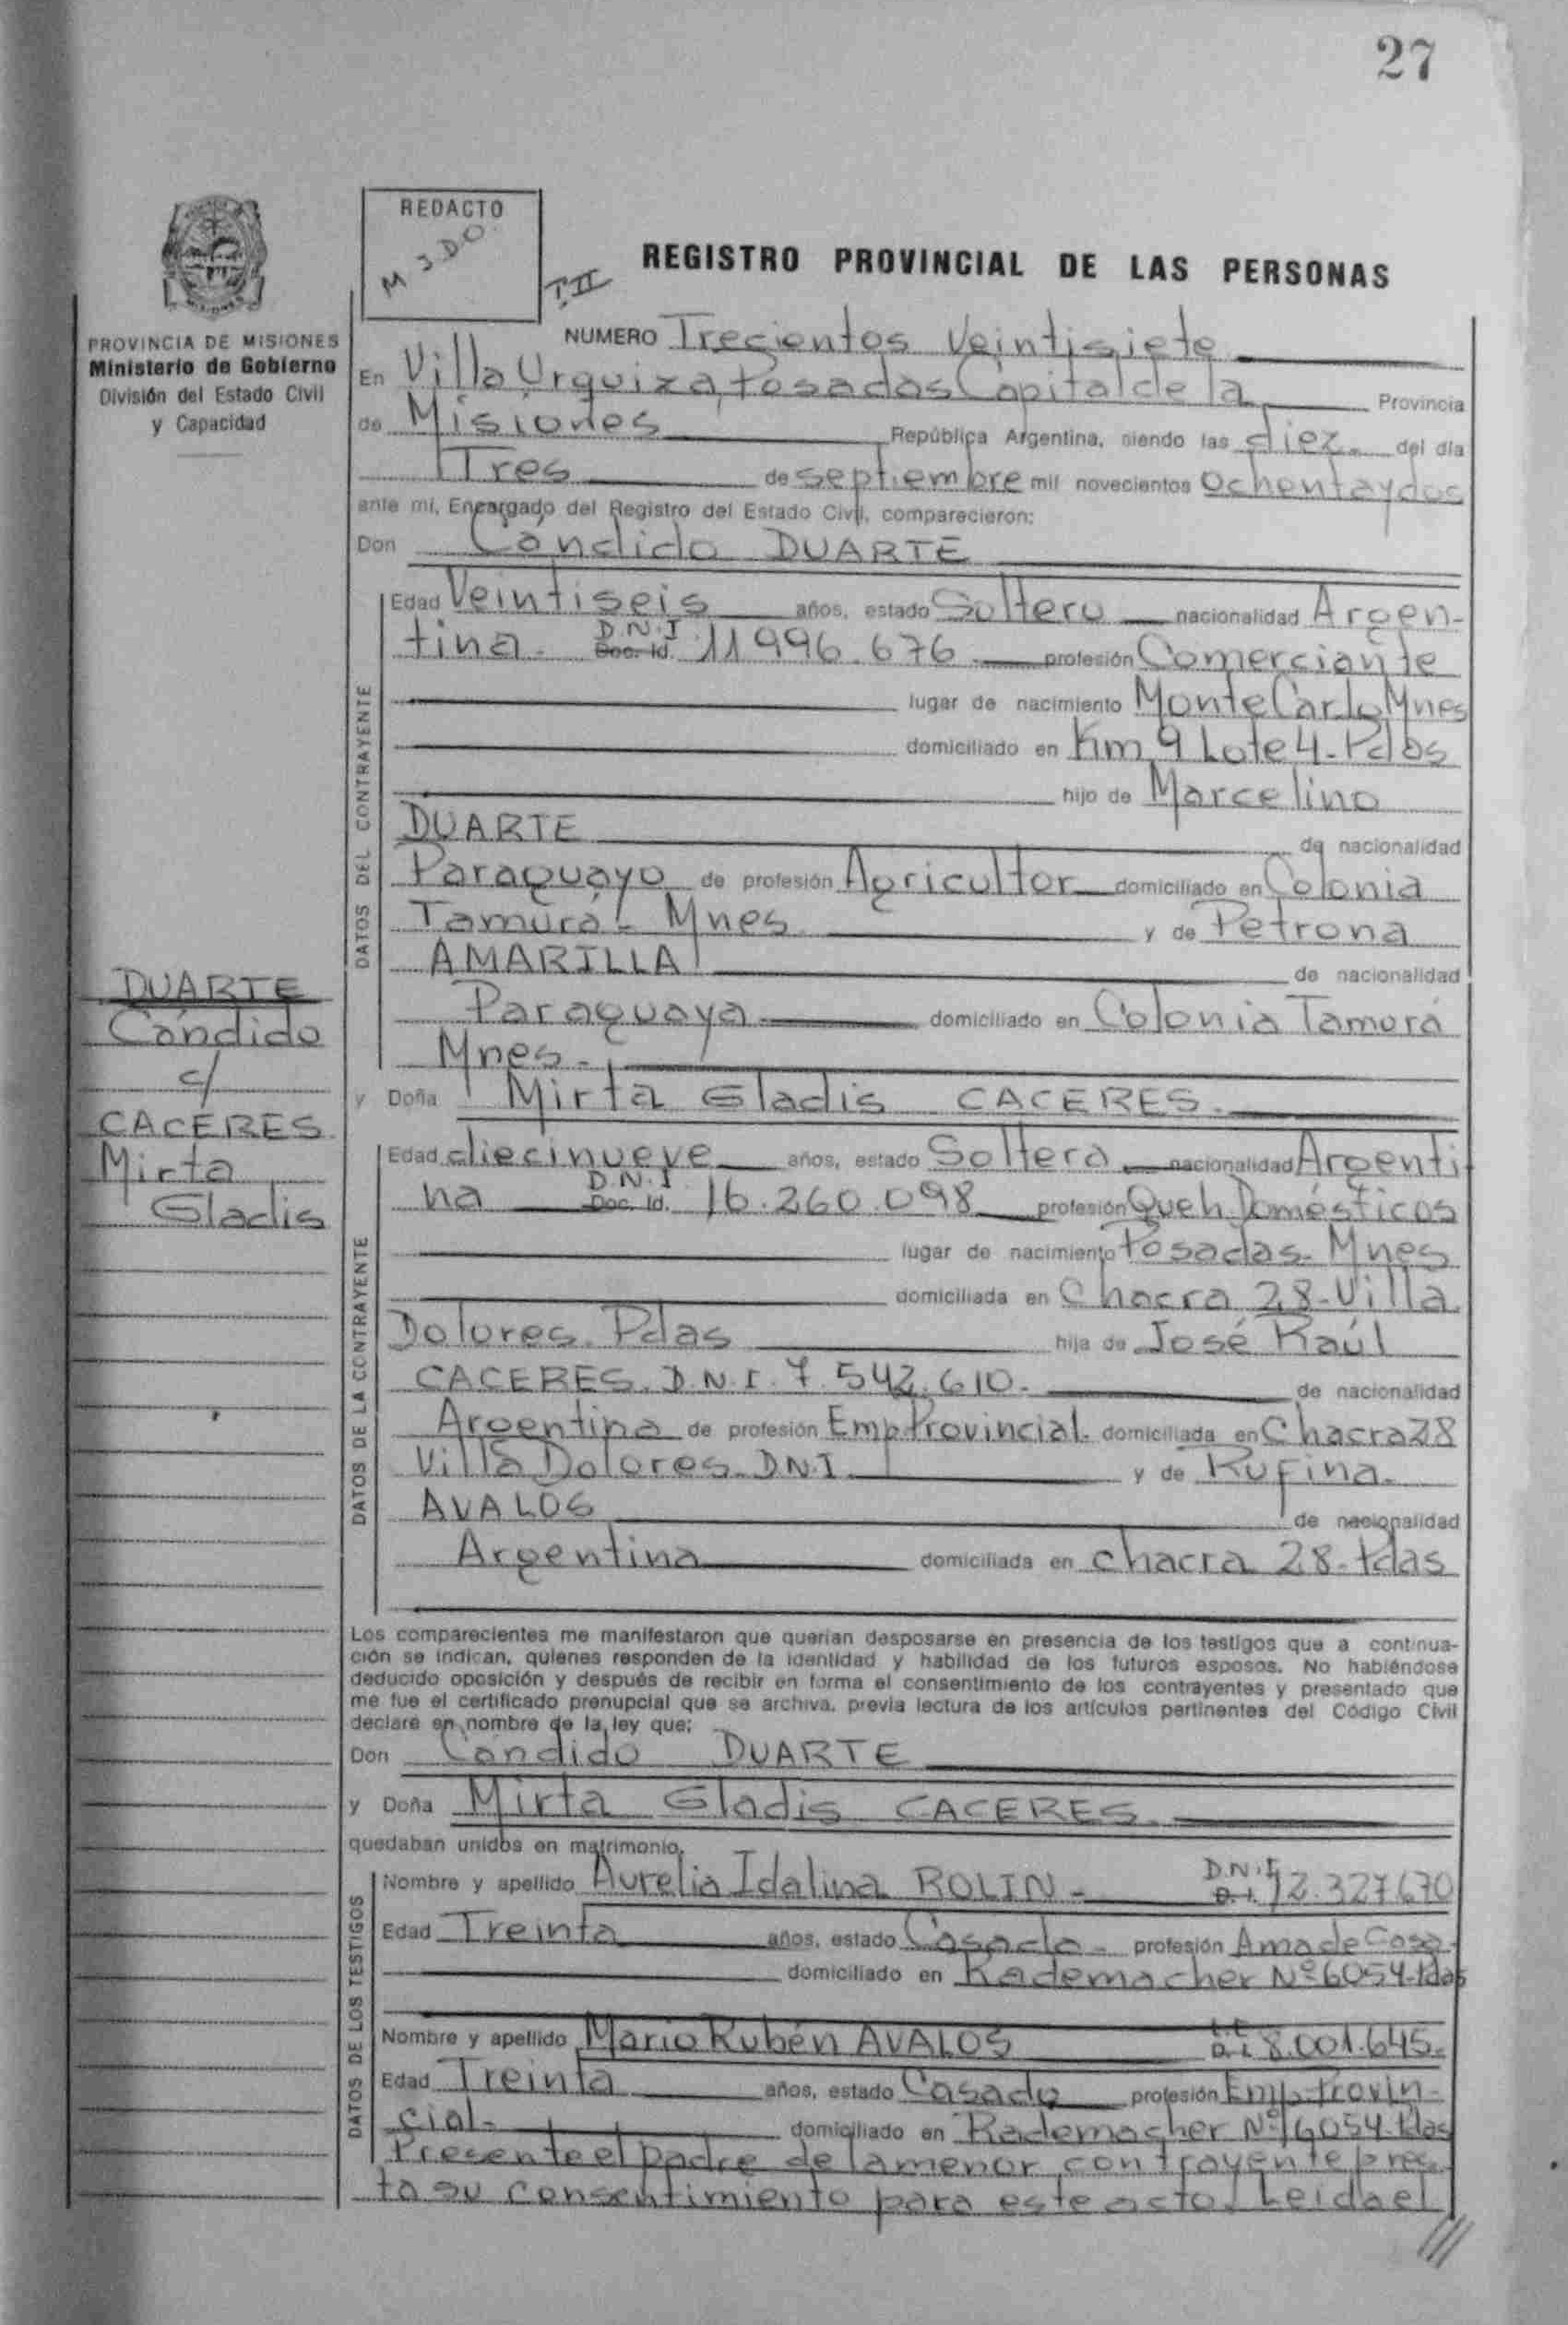 27
REDACTO
M J.D.O.
T.II
REGISTRO PROVINCIAL DE LAS PERSONAS
PROVINCIA DE MISIONES
Ministerio de Gobierno
División del Estado Civil
y Capacidad
NUMERO Trecientos Veintisiete
En Villa Urquiza, Posadas Capital de la Provincia
de Misiones República Argentina, siendo las diez. del día
Tres de septiembre mil novecientos Ochentaydos
ante mí, Encargado del Registro del Estado Civil, comparecieron:
Don Cándido DUARTE
DATOS DEL CONTRAYENTE
Edad Veintiseis años, estado Soltero nacionalidad Argen-
tina. D.N.I Doc. Id. 11.996.676 profesión Comerciante
lugar de nacimiento Monte Carlo, Mnes
domiciliado en Km 9 Lote 4. Pdas
hijo de Marcelino
DUARTE de nacionalidad
Paraguayo de profesión Agricultor domiciliado en Colonia
Tamurá - Mnes y de Petrona
AMARILLA de nacionalidad
Paraguaya domiciliado en Colonia Tamurá
Mnes.-
DUARTE
Cándido
c/
CACERES
Mirta
Gladis
y Doña Mirta Gladis CACERES.
DATOS DE LA CONTRAYENTE
Edad diecinueve años, estado Soltera nacionalidad Argenti
na D.N.I Doc. Id. 16.260.098 profesión Queh. Domésticos
lugar de nacimiento Posadas. Mnes
domiciliada en Chacra 28-Villa
Dolores. Pdas hija de José Raúl
CACERES. D.N.I. 7.542.610. de nacionalidad
Argentina de profesión Emp. Provincial. domiciliada en Chacra 28
Villa Dolores. D.N.I y de Rufina.
AVALOS de nacionalidad
Argentina domiciliada en chacra 28. Pdas
Los comparecientes me manifestaron que querían desposarse en presencia de los testigos que a continua-
ción se indican, quienes responden de la identidad y habilidad de los futuros esposos. No habiéndose
deducido oposición y después de recibir en forma el consentimiento de los contrayentes y presentado que
me fue el certificado prenupcial que se archiva, previa lectura de los artículos pertinentes del Código Civil
declaré en nombre de la ley que:
Don Cándido DUARTE
y Doña Mirta Gladis CACERES.
quedaban unidos en matrimonio.
DATOS DE LOS TESTIGOS
Nombre y apellido Aurelia Idalina ROLIN - D.N.I D.I. 12.327.670
Edad Treinta años, estado Casada. profesión Ama de Casa.
domiciliado en Rademacher Nº 6054-Pdas
Nombre y apellido Mario Rubén AVALOS L.E D.I. 8.001.645.
Edad Treinta años, estado Casado profesión Emp. Provin-
cial. domiciliado en Rademacher Nº 6054-Pdas
Presente el padre de la menor contrayente pres
ta su consentimiento para este acto. Leida el
///